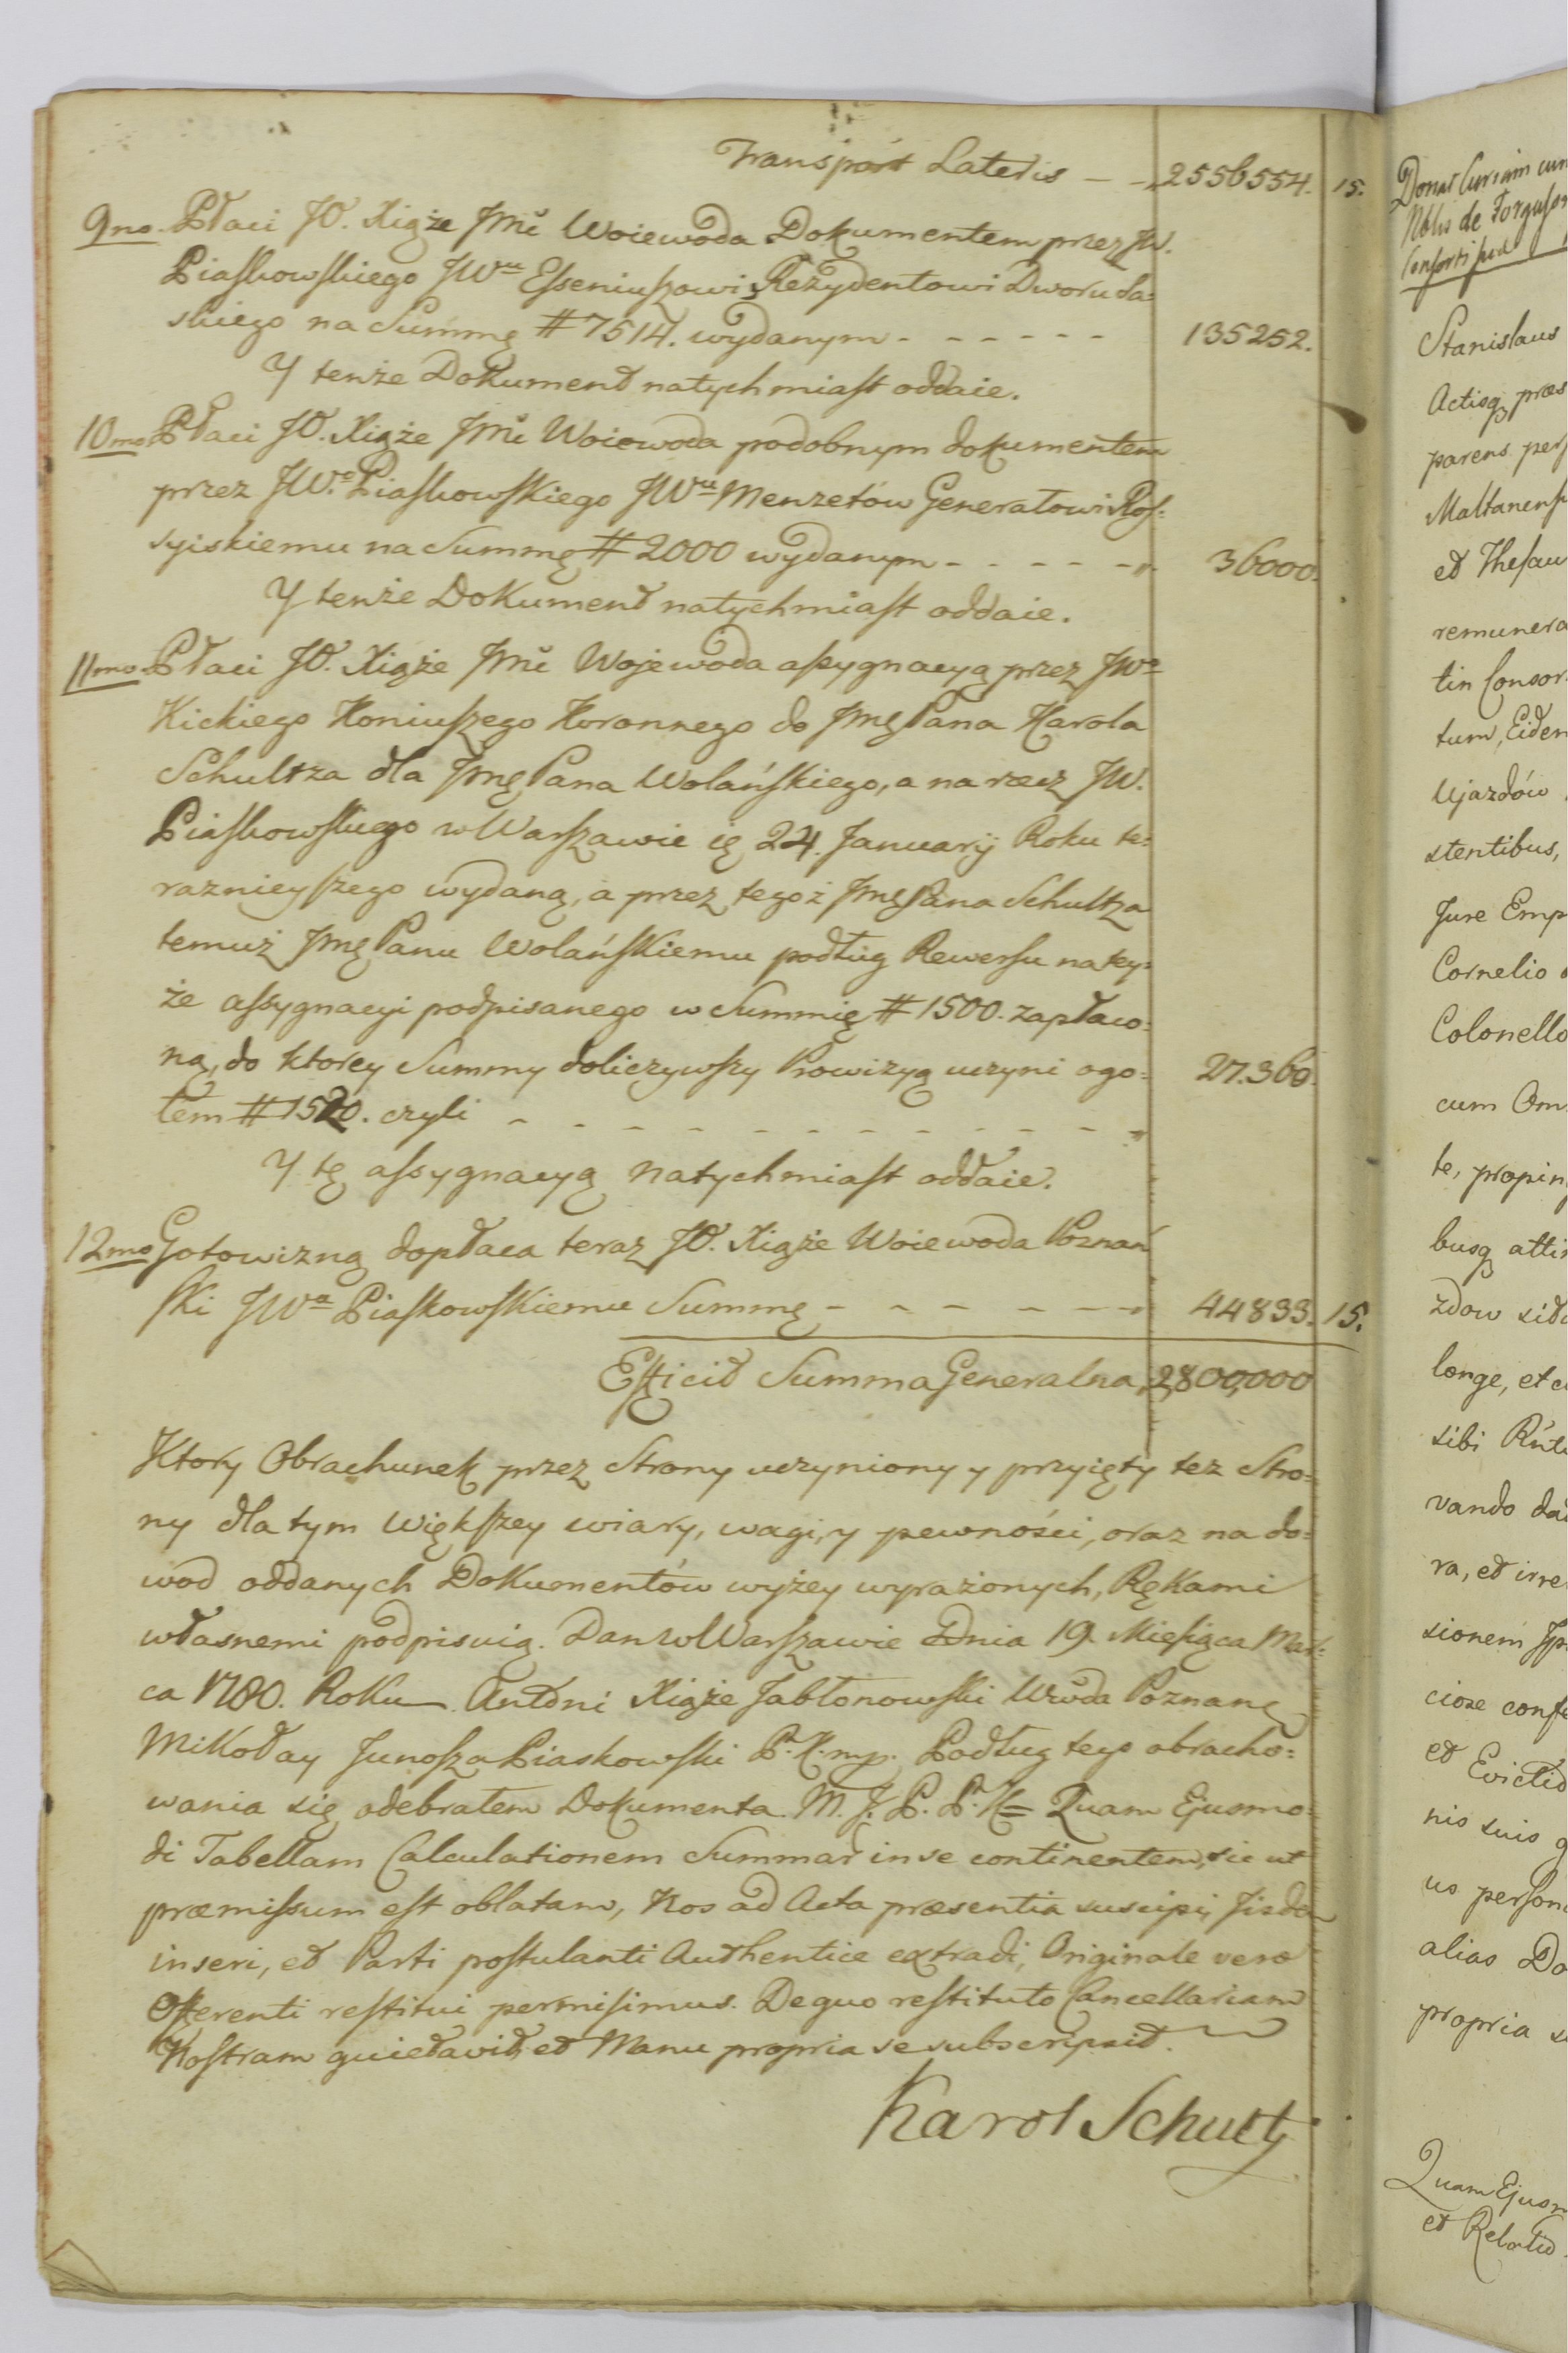 Transport Lateris – – 2556554. 15.
9no. Płaci JO. Xiąże Jmć Woiewoda Dokumentem przez JW.
Piaskowskiego JWu Esseniuszowi Rezydentowi Dworu Sa=
skiego na Summę # 7514. wydanym - - - - - - 135252.
Y tenże Dokument natychmiast oddaie.
10mo Płaci JO. Xiąże Jmć Woiewoda podobnym dokumentem
przez JWo Piaskowskiego JWu Menzetów Generałowi Ros=
syiskiemu na Summę # 2000 wydanym - - - - - 36000.
Y tenże Dokument natychmiast oddaie.
11mo Płaci JO. Xiąże Jmć Wojewoda assygnacyą przez JWo
Kickiego Koniuszego Koronnego do Jmę Pana Karola
Schultza dla Jmę Pana Wolańskiego, a na rzecz JW.
Piaskowskiego w Warszawie ię 24. Januarij Roku te=
raznieyszego wydaną, a przez tegoż Jmę Pana Schultza
temuż Jmę Panu Wolańskiemu podług Rewersu na tey=
że assygnacyi podpisanego w Summię # 1500. zapłaco=
ną, do ktorey Summy doliczywszy Prowizyą uczyni ogo= 27.360.
łem # 1520. czyli - - - - - - - - - - -
Y tę assygnacyą natychmiast oddaie.
12mo Gotowizną dopłaca teraz JO. Xiąże Woiewoda Poznań
ski JWu Piaskowskiemu Summę - - - - - - 44833. 15.
Efficit Summa Generalna 2,800,000
Ktory Obrachunek przez Strony uczyniony y przyięty też Stro=
ny dla tym większey wiary, wagi, y pewności, oraz na do=
wod oddanych Dokumentów wyżey wyrażonych, Rękami
własnemi podpisuią. Dan w Warszawie Dnia 19. Miesiąca Mar=
ca 1780. Roku Antoni Xiąże Jabłonowski Wwda Poznanę
Mikołay Junosza Piaskowski P. K. mp. Podług tego obracho=
wania się odebrałem Dokumenta. M. J. P. P. K= Quam Ejusmo=
di Tabellam Calculationem Summar in se continentem, sic ut
præmissum est oblatam, Nos ad Acta præsentia suscipi, Jisdem
inseri, et Parti postulanti Authentice extradi, Originale vero
Offerenti restitui permisimus. De quo restituto Cancellariam
Nostram quietavit, et Manu propria se subscripsit.
Karol Schultz
Donat Curiam cum
Nblis de Forguson
Consorti suæ
Stanislaus
Actisq præs
parens pers
Maltanens
et Thesau
remunera
tin Consor
tum, Eidem
Ujazdów
stentibus,
Jure Emp
Cornelio
Colonello
cum Om
te, propin
busq atti
zdow sita
longe, et
sibi
vando
ra, et irre
sionem
ciose conf
et Evictio
nis suis
us person
alias Do
propria
Quam Ejusm
et Relatio